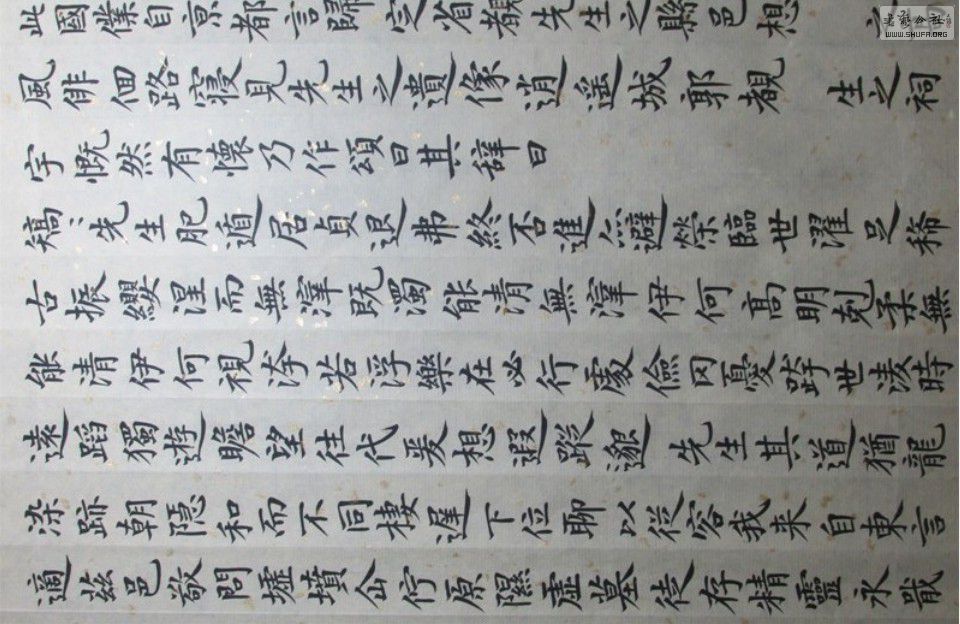 此國僕自京都言歸定省覩先生之縣邑想
風徘徊路寢見先生之遺像逍遥城郭覩 生之祠
宇慨然有懷乃作頌曰其辭曰
矯〻先生肥遁居貞退弗終否進亦避榮臨世濯足稀
古振纓涅而無滓既濁能清無滓伊何高明剋柔無
能清伊何視洿若浮樂在必行處儉罔憂跨世淩時
遠蹈獨遊瞻望往代爰想遐蹤邈 先生其道猶龍
染跡朝隱和而不同棲遲下位聊以從容我来自東言
適茲邑敬問墟墳企佇原隰虛墓徒存精靈永戢
书艺公社
WWW.SHUFA.ORG